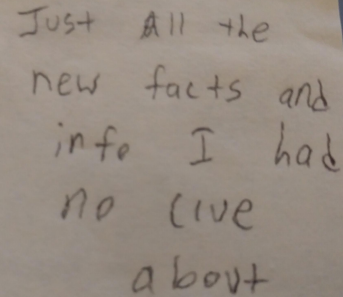 Just All the
new facts and
info I had
no clue
about